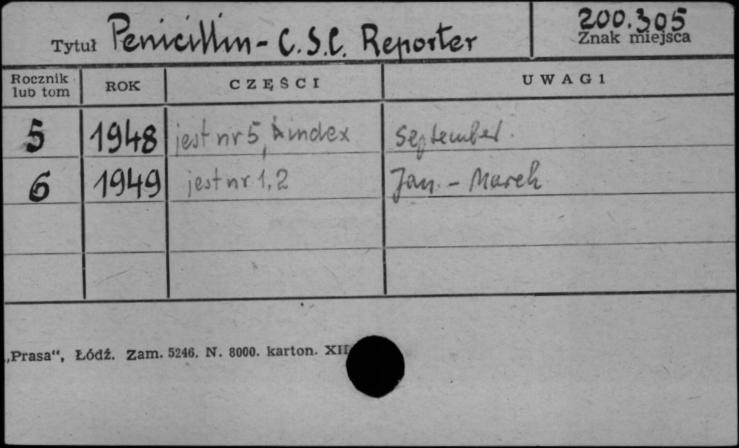 Tytuł Penicillin - C.S.C. Reporter 200.305
Znak miejsca
Rocznik lub tom ROK CZĘŚCI UWAGI
5 1948 jest nr 5, index September.
6 1949 jest nr 1, 2 Jan. - March
„Prasa“, Łódź. Zam. 5246. N. 8000. karton. XII